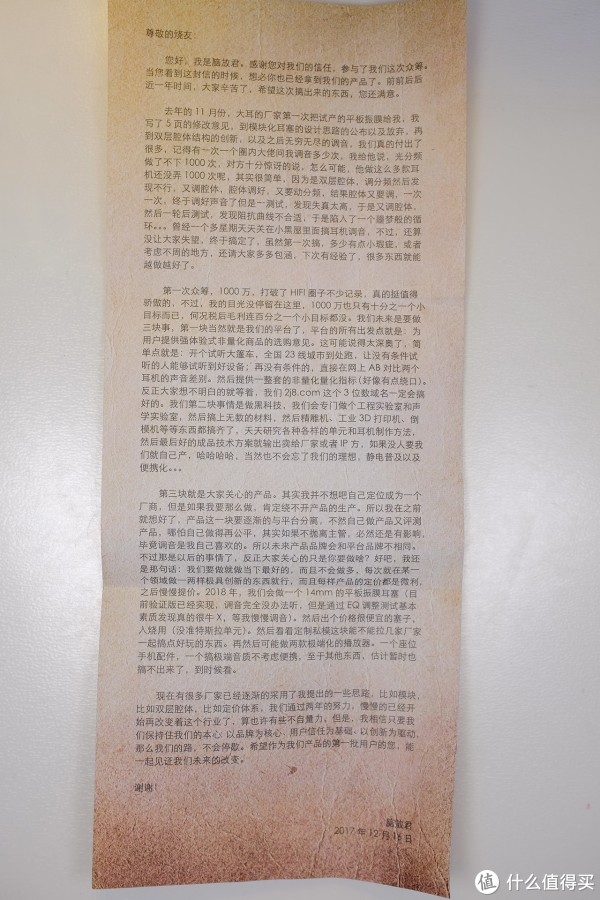 尊敬的烧友：
您好，我是脑放君。感谢您对我们的信任，参与了我们这次众筹。
当您看到这封信的时候，想必你也已经拿到我们的产品了。前前后后
近一年时间，大家辛苦了，希望这次搞出来的东西，您还满意。
去年的11月份，大耳的厂家第一次把试产的平板振膜给我，我
写了5页的修改意见，到模块化耳塞的设计思路的公布以及放弃，再
到双层腔体结构的创新，以及之后无穷无尽的调音，我们真的付出了
很多，记得有一次一个圈内大佬问我调音多少次，我给他说，光分频
做了不下1000次，对方十分惊讶的说，怎么可能，他做这么多款耳
机还没弄1000次呢，其实很简单，因为是双层腔体，调分频然后发
现不行，又调腔体，腔体调好，又要动分频，结果腔体又要调，一次
一次，终于调好声音了但是一测试，发现失真太高，于是又调腔体，
然后一轮后测试，发现阻抗曲线不合适，于是陷入了一个噩梦般的循
环。。。曾经一个多星期天天关在小黑屋里面搞耳机调音，不过，还算
没让大家失望，终于搞定了，虽然第一次搞，多少有点小瑕疵，或者
考虑不周的地方，还请大家多多包涵，下次有经验了，很多东西就能
越做越好了。
第一次众筹，1000万，打破了HIFI圈子不少记录，真的挺值得
骄傲的，不过，我的目光没停留在这里，1000万也只有十分之一个小
目标而已，何况税后毛利连百分之一个小目标都没。我们未来是要做
三块事，第一块当然就是我们的平台了，平台的所有出发点就是：为
用户提供强体验式非量化商品的选购意见。这可能说得太深奥了，简
单点就是：开个试听大篷车，全国23线城市到处跑，让没有条件试
听的人能够试听到好设备；再没有条件的，直接在网上AB对比两个
耳机的声音差别。然后提供一整套的非量化量化指标（好像有点绕口）。
反正大家想不明白的就等着，我们2j8.com这个3位数域名一定会搞
好的。我们第二块事情是做黑科技，我们会专门做个工程实验室和声
学实验室，然后搞上无数的材料，然后精雕机、工业3D打印机、倒
模机等等东西都搞齐了，天天研究各种各样的单元和耳机制作方法，
然后最后好的成品技术方案就输出卖给厂家或者IP方，如果没人要我
们就自己产，哈哈哈哈，当然也不会忘了我们的理想，静电普及以及
便携化。。。
第三块就是大家关心的产品。其实我并不想吧自己定位成为一个
厂商，但是如果我要那么做，肯定绕不开产品的生产。所以我在之前
就想好了，产品这一块要逐渐的与平台分离，不然自己做产品又评测
产品，哪怕自己做得再公平，其实如果不抛离主管，必然还是有影响，
毕竟调音是我自己喜欢的。所以未来产品品牌会和平台品牌不相同。
不过那是以后的事情了，反正大家关心的只是你要做啥？好吧，我还
是那句话：我们要做就做当下最好的，而且不会做多，每次就在某一
个领域做一两样极具创新的东西就行，而且每样产品的定价都是微利，
之后慢慢提价。2018年，我们会做一个14mm的平板振膜耳塞（目
前验证版已经实现，调音完全没办法听，但是通过EQ调整测试基本
素质发现真的很牛X，等我慢慢调音）。然后出个价格很便宜的塞子，
入烧用（没准特斯拉单元）。然后看看定制私模这块能不能拉几家厂家
一起搞点好玩的东西。再然后可能做两款极端化的播放器。一个座位
手机配件，一个搞极端音质不考虑便携，至于其他东西，估计暂时也
搞不出来了，到时候看。
现在有很多厂家已经逐渐的采用了我提出的一些思路，比如模块，
比如双层腔体，比如定价体系，我们通过两年的努力，慢慢的已经开
始再改变着这个行业了，算也许有些不自量力。但是，我相信只要我
们保持住我们的本心：以品牌为核心、用户信任为基础、以创新为驱动，
那么我们的路，不会停歇。希望作为我们产品的第一批用户的您，能
一起见证我们未来的改变。
谢谢！
脑放君
2017年12月16日
值 什么值得买